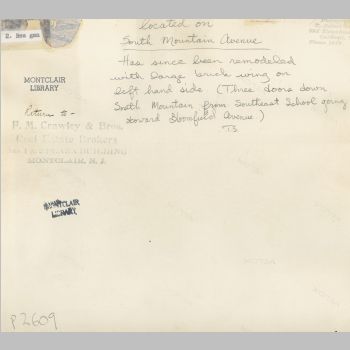 located on
South Mountain Avenue
Has since been remodeled
with large brick wing on
left hand side (Three doors down
South Mountain from Southeast School going
toward Bloomfield Avenue.)
TS
2. Sea gan
MONTCLAIR
LIBRARY
Return to -
F. M. Crawley & Bros.
Real Estate Brokers
BUILDING
MONTCLAIR, N. J.
MONTCLAIR
LIBRARY
p2609